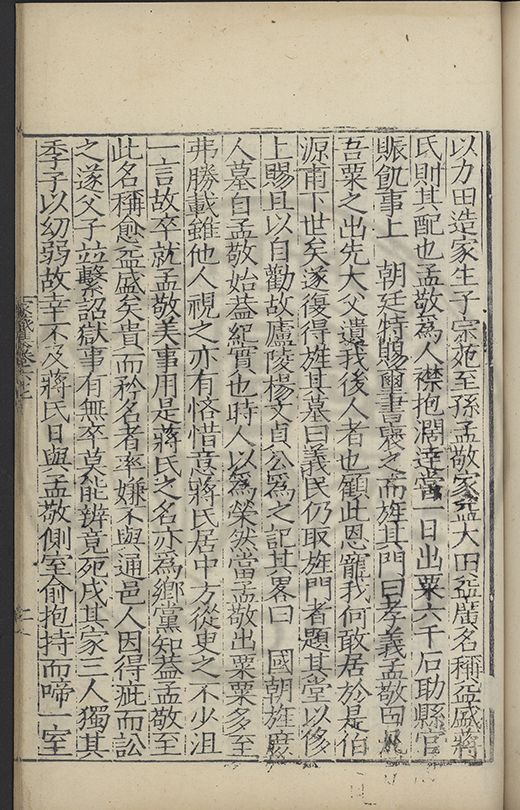 以力田造家生子宗范至孫孟敬家益大田益廣名稱益盛蔣
氏則其配也孟敬為人襟抱濶達嘗一日出粟六千石助縣官
賑飢事上　朝廷特賜璽書褒之而旌其門曰孝義孟敬曰
吾粟之出先大父遺我後人者也顧此恩寵我何敢居於是伯
源甫下世矣遂復得旌其墓曰義民仍取旌門者題其堂以侈
上賜且以自勸故廬陵楊文貞公為之記其畧曰　國朝旌慶
人墓自孟敬始葢紀實也時人以為榮然當孟敬出粟粟多至
弗勝載雖他人視之亦有悋惜意蔣氏居中方從臾之不少沮
一言故卒就孟敬美事用是蔣氏之名亦為鄉黨知葢孟敬至
此名稱愈益盛矣貴而矜名者率嫌不與通邑人因得疵而訟
之遂父子竝繫詔獄事有無卒莫能辨竟死戍其家三人獨其
季子以幼弱故幸不及蔣氏日與孟敬側室俞抱持而啼一室